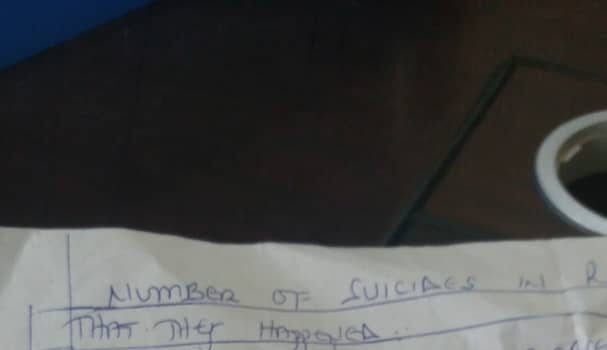 NUMBER OF SUICIDES IN R
THAT THEY HAPPENED..